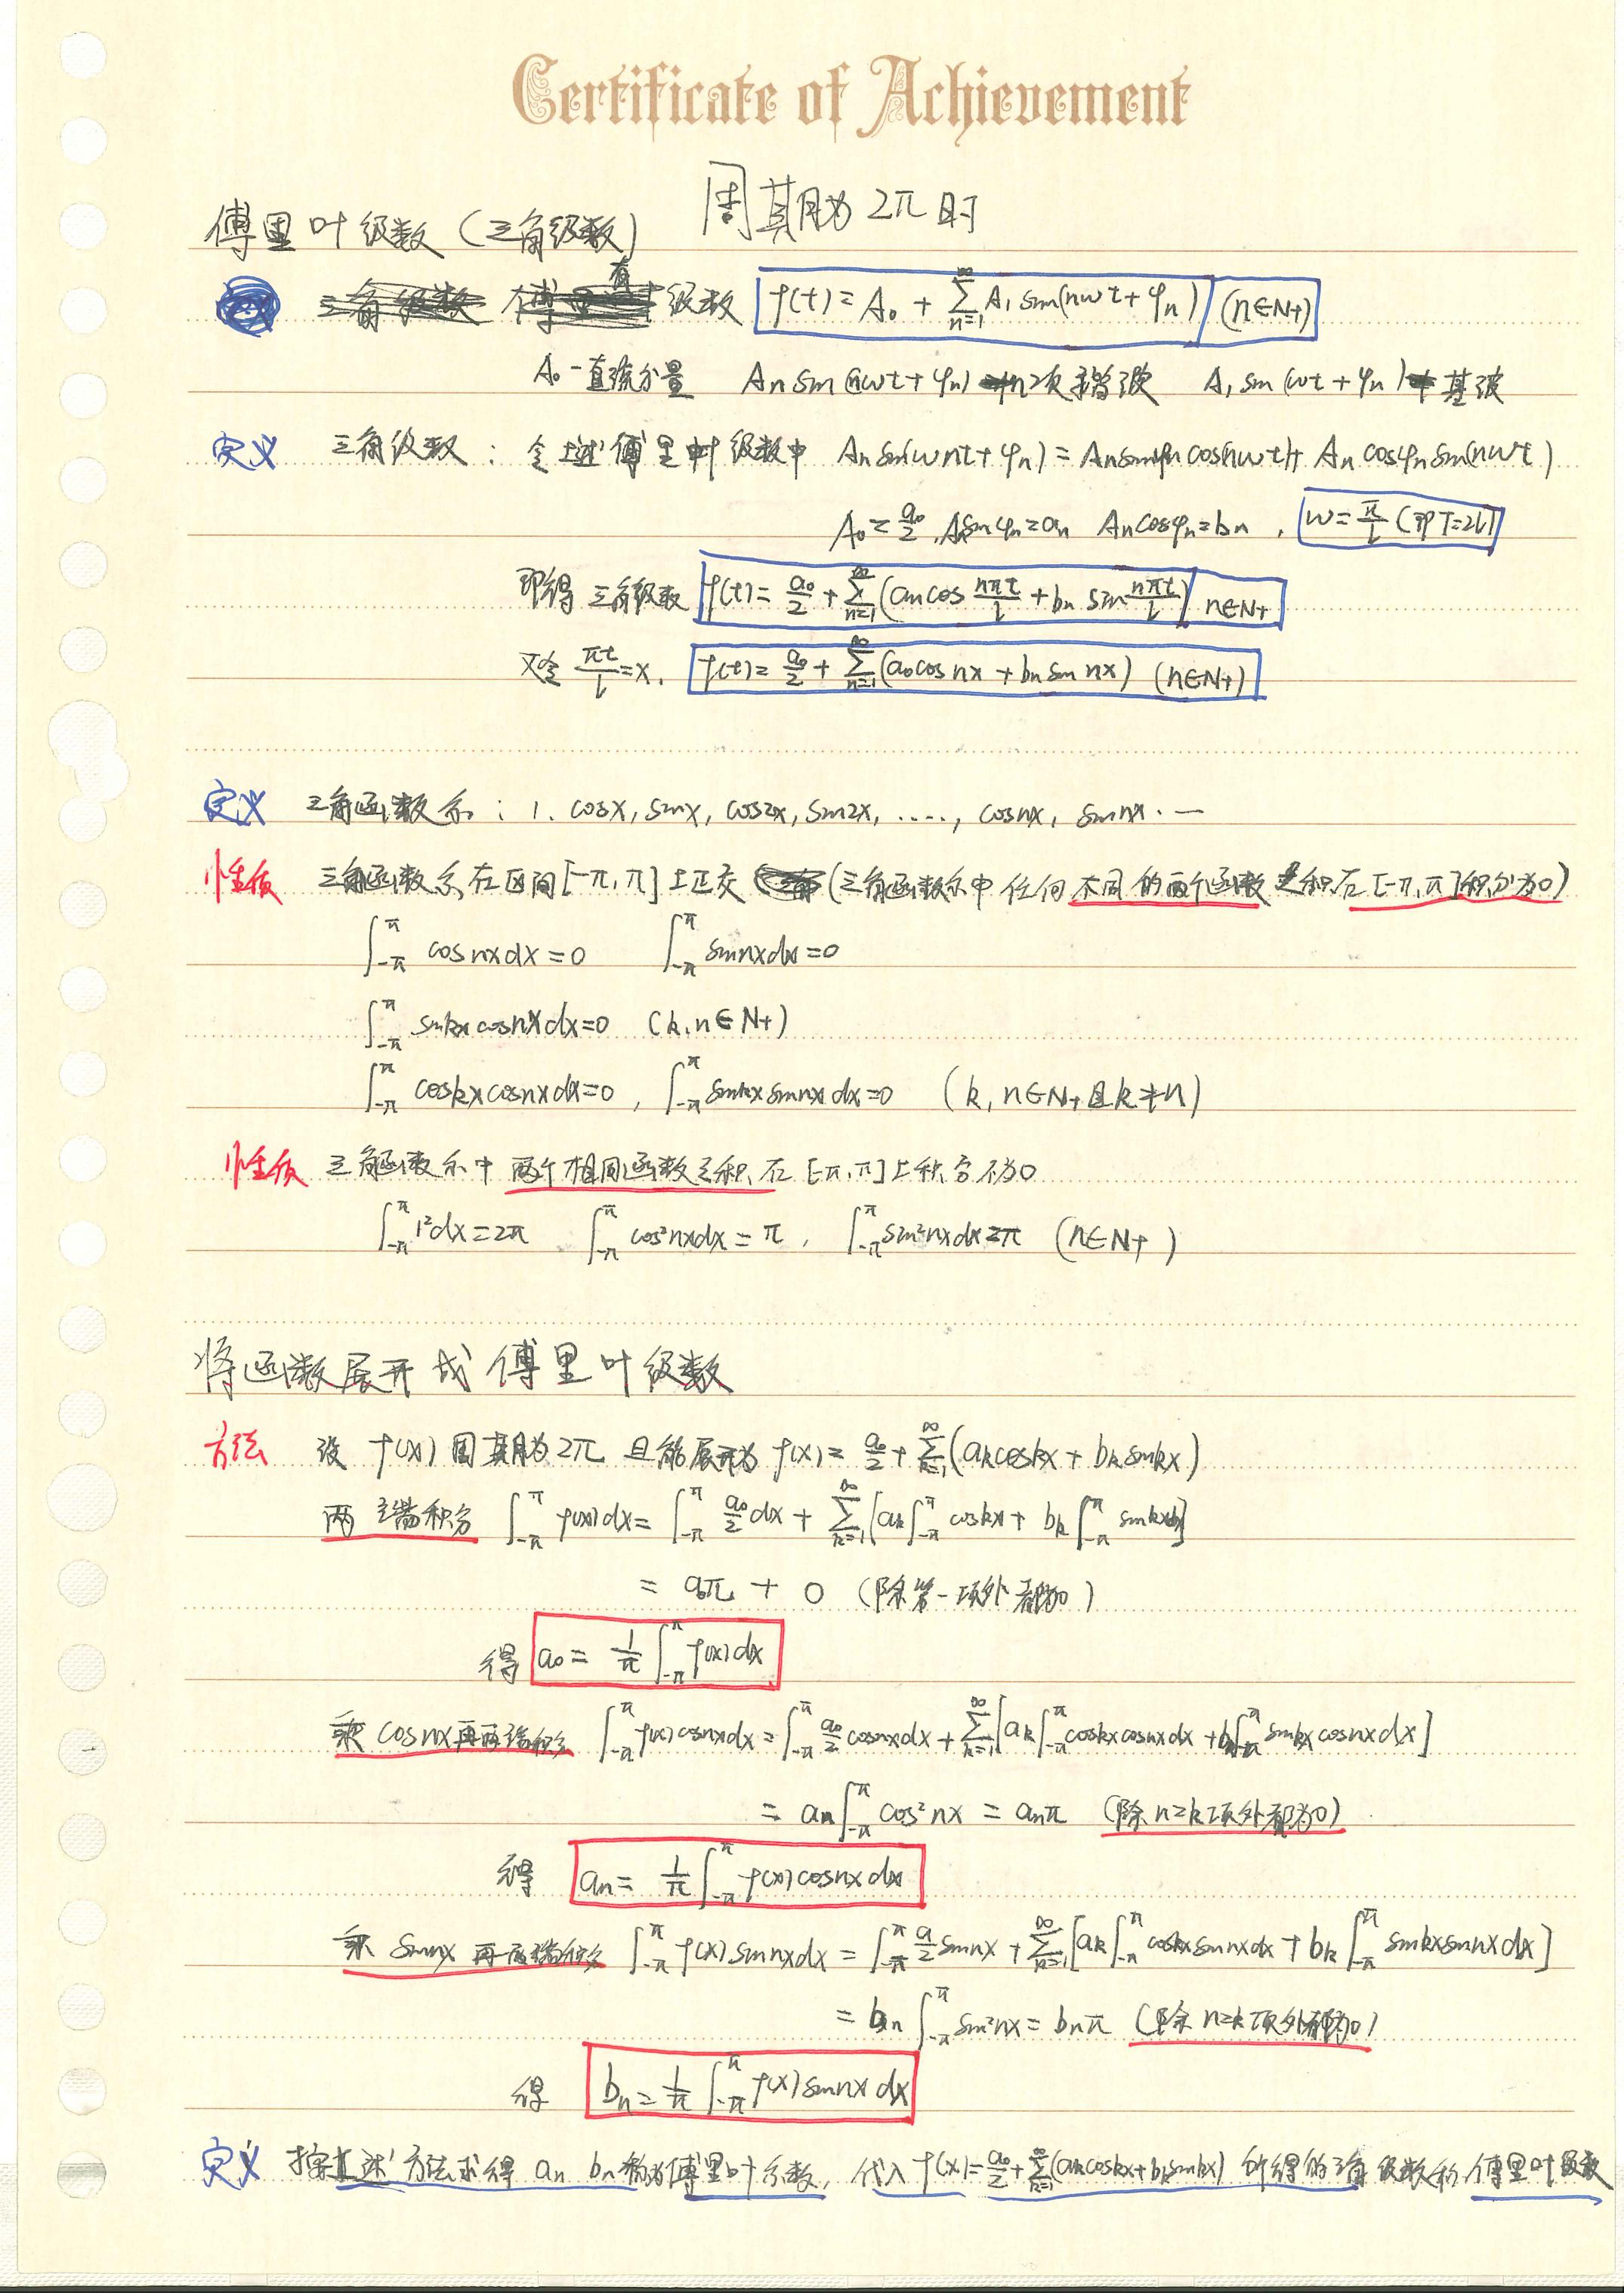 Certificate of Achievement
周期为 2π 时
傅里叶级数 (三角级数)
级数 f(t) = A₀ + ∑_{n=1}^{∞} A₁ sin(nωt + φₙ) (n∈N₊)
A₀ - 直流分量 Aₙ sin(nωt + φₙ) n次谐波 A₁ sin(ωt + φₙ) 基波
定义 三角级数 : 令上述傅里叶级数中 Aₙ sin(ωnt + φₙ) = Aₙ sinφₙ cos(nωt) + Aₙ cosφₙ sin(nωt)
A₀ = a₀/2 , Aₙ sinφₙ = aₙ Aₙ cosφₙ = bₙ , ω = π/l (即 T=2l)
即得 三角级数 f(t) = a₀/2 + ∑_{n=1}^{∞} (aₙ cos nπt/l + bₙ sin nπt/l) n∈N₊
又令 πt/l = x , f(t) = a₀/2 + ∑_{n=1}^{∞} (a₀ cos nx + bₙ sin nx) (n∈N₊)
定义 三角函数系 : 1. cosx, sinx, cos2x, sin2x, ...., cosnx, sinnx. —
性质 三角函数系在区间 [-π, π] 上正交 (三角函数系中任何不同的两个函数之积在 [-π, π] 积分为0)
∫_{-π}^{π} cosnxdx = 0 ∫_{-π}^{π} sinnxdx = 0
∫_{-π}^{π} sinkx cosnxdx = 0 (k, n∈N₊)
∫_{-π}^{π} coskx cosnxdx = 0 , ∫_{-π}^{π} sinkx sinnxdx = 0 (k, n∈N₊且k≠n)
性质 三角函数系中 两个相同函数之积在 [-π, π] 上积分不为0
∫_{-π}^{π} 1²dx = 2π ∫_{-π}^{π} cos²nxdx = π , ∫_{-π}^{π} sin²nxdx = π (n∈N₊)
将函数展开成傅里叶级数
方法 设 f(x) 周期为 2π 且能展开为 f(x) = a₀/2 + ∑_{k=1}^{∞} (aₖ coskx + bₖ sinkx)
两端积分 ∫_{-π}^{π} f(x)dx = ∫_{-π}^{π} a₀/2 dx + ∑_{k=1}^{∞} [aₖ ∫_{-π}^{π} coskx + bₖ ∫_{-π}^{π} sinkxdx]
= a₀π + 0 (除第一项外都为0)
得 a₀ = 1/π ∫_{-π}^{π} f(x)dx
乘 cosnx 再两端积分 ∫_{-π}^{π} f(x)cosnxdx = ∫_{-π}^{π} a₀/2 cosnxdx + ∑_{k=1}^{∞} [aₖ ∫_{-π}^{π} coskx cosnxdx + bₖ ∫_{-π}^{π} sinkx cosnxdx]
= aₙ ∫_{-π}^{π} cos²nx = aₙπ (除 n=k项外都为0)
得 aₙ = 1/π ∫_{-π}^{π} f(x)cosnxdx
乘 sinnx 再两端积分 ∫_{-π}^{π} f(x)sinnxdx = ∫_{-π}^{π} a/2 sinnx + ∑_{k=1}^{∞} [aₖ ∫_{-π}^{π} coskx sinnxdx + bₖ ∫_{-π}^{π} sinkx sinnxdx]
= bₙ ∫_{-π}^{π} sin²nx = bₙπ (除 n=k项外都为0)
得 bₙ = 1/π ∫_{-π}^{π} f(x)sinnxdx
定义 按上述方法求得 aₙ bₙ 称为傅里叶系数, 代入 f(x) = a₀/2 + ∑_{k=1}^{∞} (aₖcoskx + bₖsinkx) 所得的三角级数称傅里叶级数